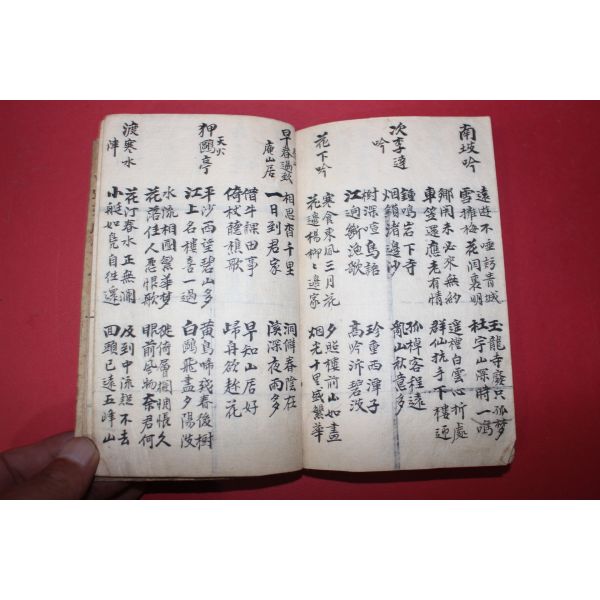 南坡吟
遠遊不唾訪青城 玉龍寺廢只孤夢
雪擁梅花洞裏明 杜宇山深時一鳴
鄉閭未必來無約 蓬裡白雲心折處
車笠還應老有情 群仙抗手下樓迎
次李達
吟
鐘鳴岩下寺 孤棹客程遠
烟鎖渚邊沙 亂山秋意多
樹深喧鳥語 珍重西潭子
江逈斷漁歌 高吟泝碧波
花下吟
寒食東風三月花 夕照樓前山如畫
花邊楊柳柳邊家 烟光十里盛繁華
早春過
庵山居
相思杳千里 洞僻春陰在
一日到君家 溪深夜雨多
借牛課田事 早知山居好
倚杖聽樵歌 歸舟欲趁花
狎鷗亭
天火
平沙西望碧山多 黄鳥啼殘春後樹
江上名樓喜一過 白鷗飛盡夕陽波
水流相國繁華夢 徙倚層欄惆悵久
花落佳人怨恨歌 眼前風物奈君何
渡寒水
津
花汀春水正無瀾 及到中流超不去
小艇如凫自往還 回頭已遠五峰山